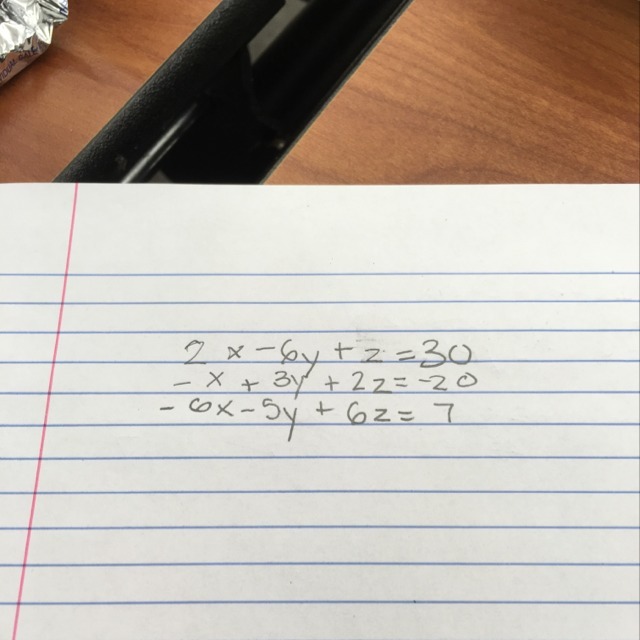 2x-6y+z=30
-x+3y+2z=-20
-6x-5y+6z=7